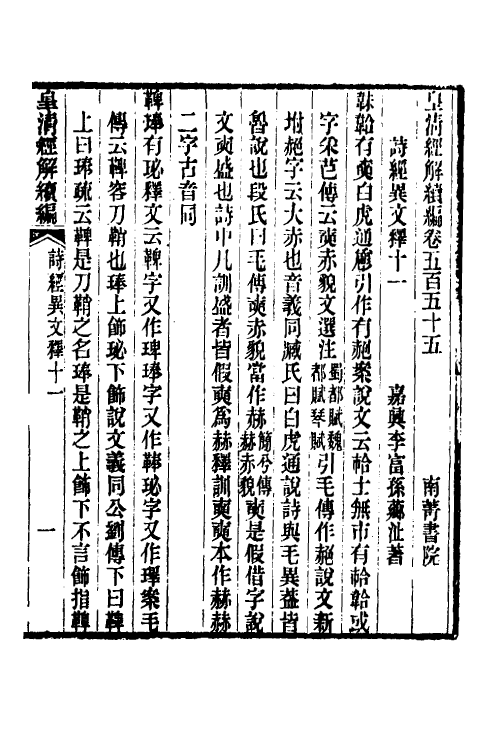 皇清經解續編卷五百五十五　南菁書院
詩經異文釋十一　嘉興李富孫薌沚著
韎韐有奭白虎通爵引作有赩案說文云帢士無巿有帢韐或
字采芑傳云奭赤貌文選注蜀都賦魏都賦琴賦引毛傳作赩說文新
坿赩字云大赤也音義同臧氏曰白虎通說詩與毛異葢皆
魯說也段氏曰毛傳奭赤貌當作赫簡兮傳赫赤貌奭是假借字說
文奭盛也詩中凡訓盛者皆假奭爲赫釋訓奭奭本作赫赫
二字古音同
鞞琫有珌釋文云鞞字又作琕琫字又作鞛珌字又作㻫案毛
傳云鞞容刀鞘也琫上飾珌下飾說文義同公劉傳下曰鞞
上曰琫疏云鞞是刀鞘之名琫是鞘之上飾下不言飾指鞞
皇清經解續編　詩經異文釋十一　一